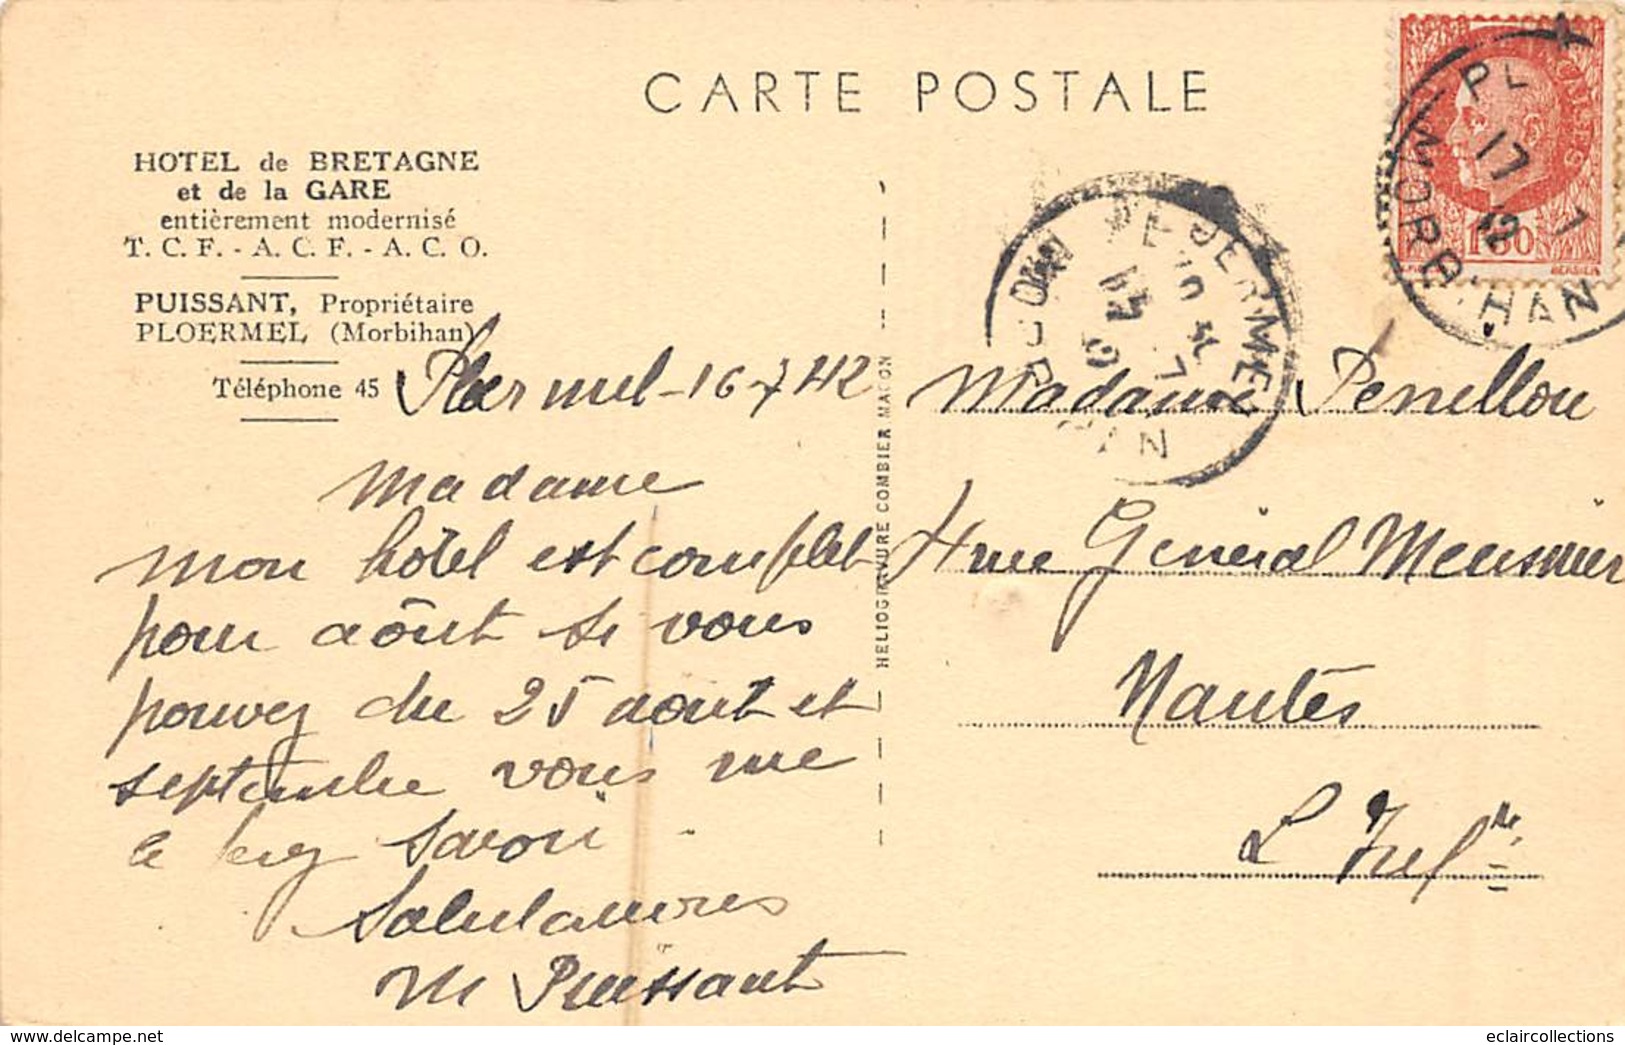 CARTE POSTALE
HOTEL de BRETAGNE
et de la GARE
entièrement modernisé
T. C. F. - A. C. F. - A. C. O.
PUISSANT, Propriétaire
PLOERMEL (Morbihan)
Téléphone 45
Ploermel - 16-7 42
Madame
mon hôtel est complet
pour août si vous
pouvez du 25 août et
septembre vous me
le ferez savoir
Salutations
M Puissant
HELIOGRAVURE COMBIER MACON
Madame Penellou
4 rue Général Meusnier
Nantes
L Infre
PL
17
7
42
MORBIHAN
1F50
BERSIER
PLOERMEL
eclaircollections